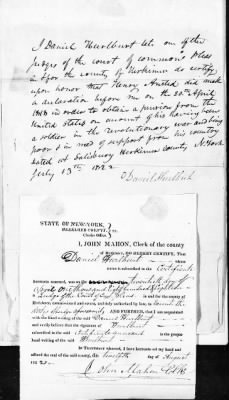 I Daniel Hurlburt late one of the
judges of the court of common Pleas
in & for the county of Herkimer do certify
upon honor that Henry did make
a declaration before me on the 20th April
1818 in order to obtain a pension from the
United States on account of his having been
a soldier in the revolutionary war and being
poor & in need of support from his country
Dated at Salisbury Herkimer County N York
July 13th 1822
Daniel Hurlburt
STATE OF NEW-YORK,
HERKIMER COUNTY, ss.
Clerks Office.
I, JOHN MAHON, Clerk of the county
of Herkimer, DO HEREBY CERTIFY, That
Daniel Hurlburt
whose name is subscribed to the certificate
hereunto annexed, was on the twentieth day of
April one thousand eight hundred & eighteen
a Judge of the Court of Com Pleas in and for the county of
Herkimer, commissioned and sworn, and duly authorised by law, to
AND FURTHER, that I am acquainted
with the hand writing of the said Daniel Hurlburt
and verily believe that the signature of Hurlburt
subscribed to the said certificate is in the proper
hand writing of the said Hurlburt
IN TESTIMONY WHEREOF, I have hereunto set my hand and
affixed the seal of the said county, this twelfth day of August
1822.
John Mahon Clk